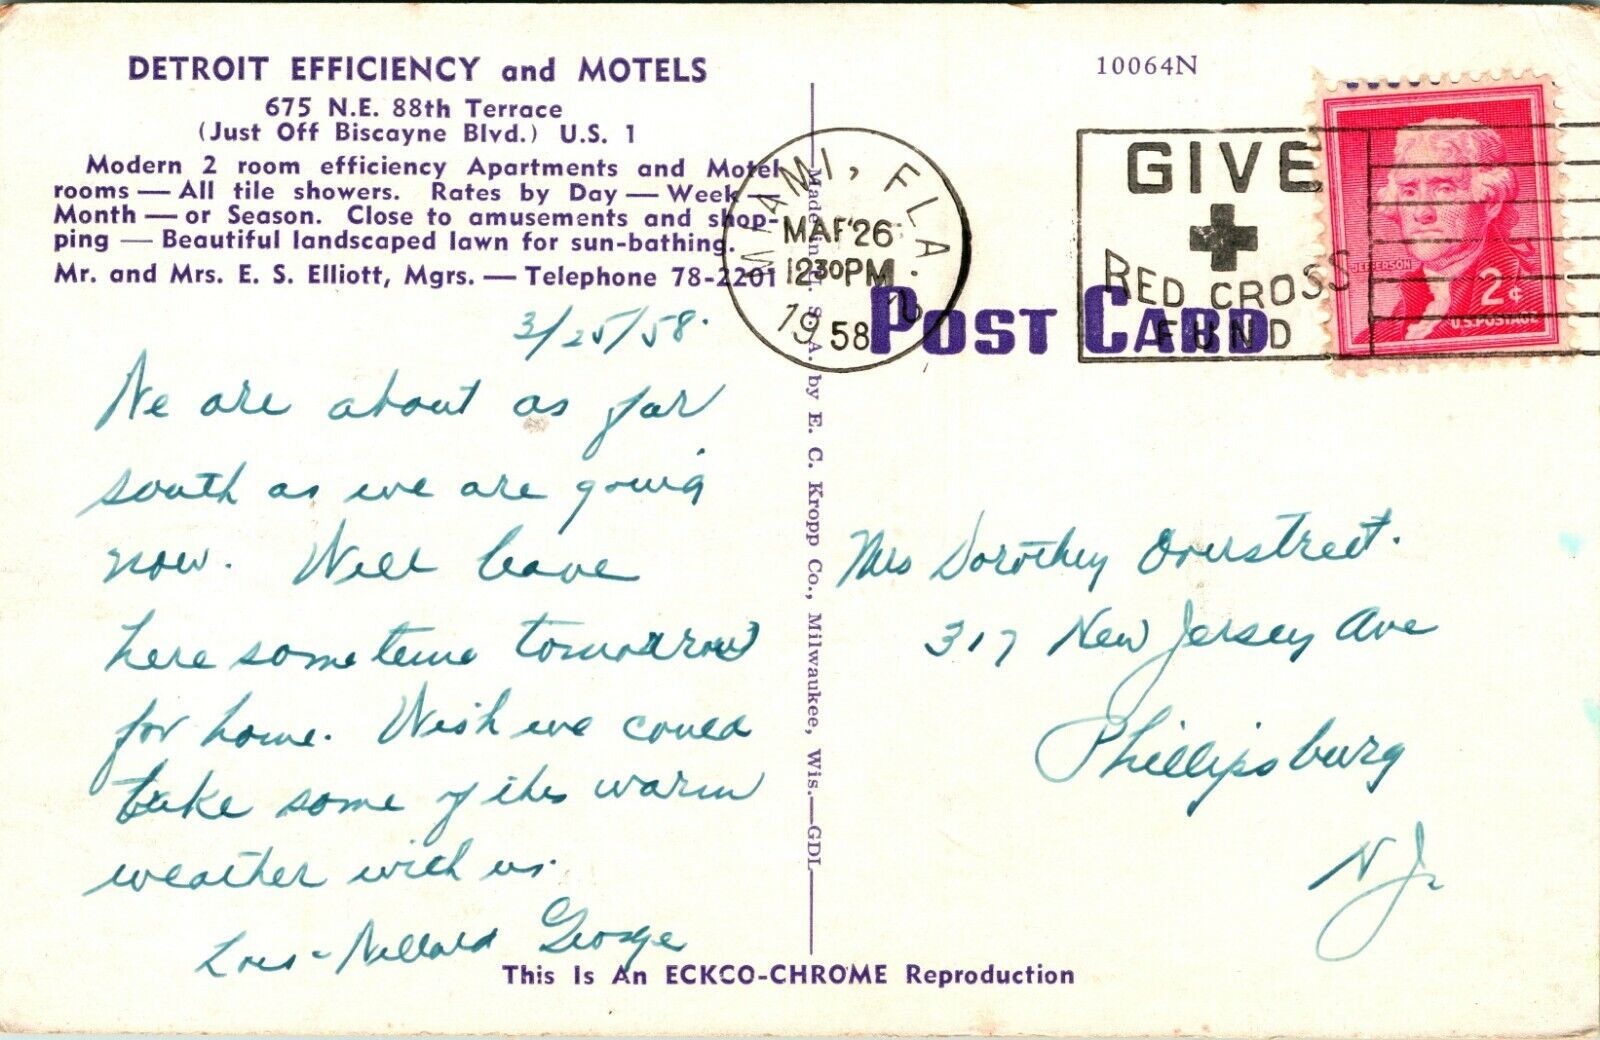 DETROIT EFFICIENCY and MOTELS
675 N.E. 88th Terrace
(Just Off Biscayne Blvd.) U.S. 1
Modern 2 room efficiency Apartments and Motel
rooms — All tile showers. Rates by Day — Week —
Month — or Season. Close to amusements and shop-
ping — Beautiful landscaped lawn for sun-bathing.
Mr. and Mrs. E. S. Elliott, Mgrs. — Telephone 78-2201
3/25/58.
We are about as far
south as we are going
now. Will leave
here sometime tomorrow
for home. Wish we could
take some of this warm
weather with us.
Lois - Willard George
Made in U. S. A. by E. C. Kropp Co., Milwaukee, Wis.—GDL
10064N
MIAMI, FLA.
MAR 26
12 30 PM
1958
GIVE
RED CROSS
FUND
JEFFERSON
2¢
U.S. POSTAGE
POST CARD
Mrs Dorothey Overstreet.
317 New Jersey Ave
Phillipsburg
N J.
This Is An ECKCO-CHROME Reproduction